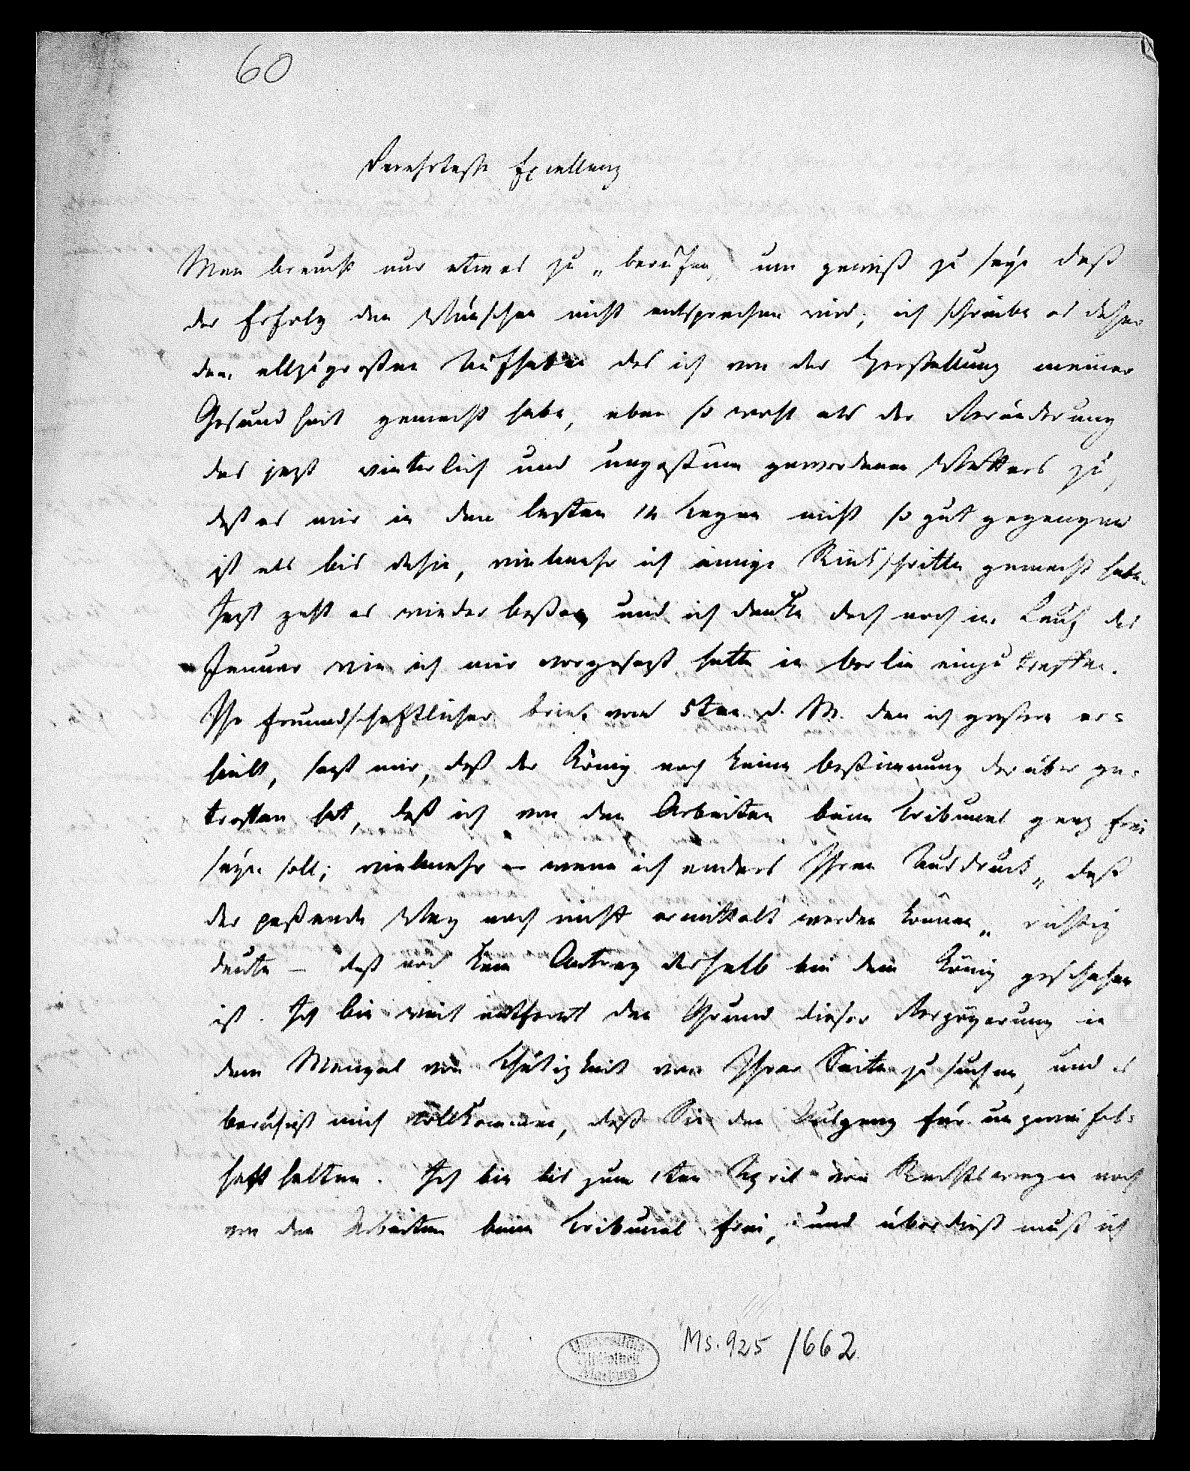 60
Verehrteste Excellenz
Man braucht nur etwas zu „berufen, um gewiß zu seyn daß
der Erfolg den Wünschen nicht entsprechen wird; ich schreibe es daher
dem allzugroßen Aufheben das ich von der Herstellung meiner
Gesundheit gemacht habe, eben so wohl als der Veränderung
des jezt winterlich und ungestüm gewordenen Wetters zu,
daß es mir in den lezten 14 Tagen nicht so gut gegangen
ist als bis dahin, vielmehr ich einige Rückschritte gemacht habe.
Jezt geht es wieder besser, und ich denke doch noch im Lauf des
Januar wie ich mir vorgesezt hatte in Berlin einzutreffen.
Ihr freundschaftlicher Brief vom 5ten d. M. den ich gestern er=
hielt, sagt mir, daß der König noch keine Bestimmung darüber ge=
troffen hat, daß ich von den Arbeiten beim Tribunal ganz frei
seyn soll; vielmehr – wenn ich anders Ihren Ausdruck „daß
der passende Weg noch nicht ermittelt werden können„ richtig
deute – daß noch kein Antrag deshalb bei dem König geschehen
ist. Ich bin weit entfernt den Grund dieser Verzögerung in
dem Mangel von Thätigkeit von Ihrer Seite zu suchen, und es
beruhigt mich vollkommen, daß Sie den Ausgang für unzweifel=
haft halten. Ich bin bis zum 1ten April von Rechtswegen noch
von den Arbeiten beim Tribunal frei, und überdieß muß ich
Universitäts
Bibliothek
Marburg
Ms. 925 /662